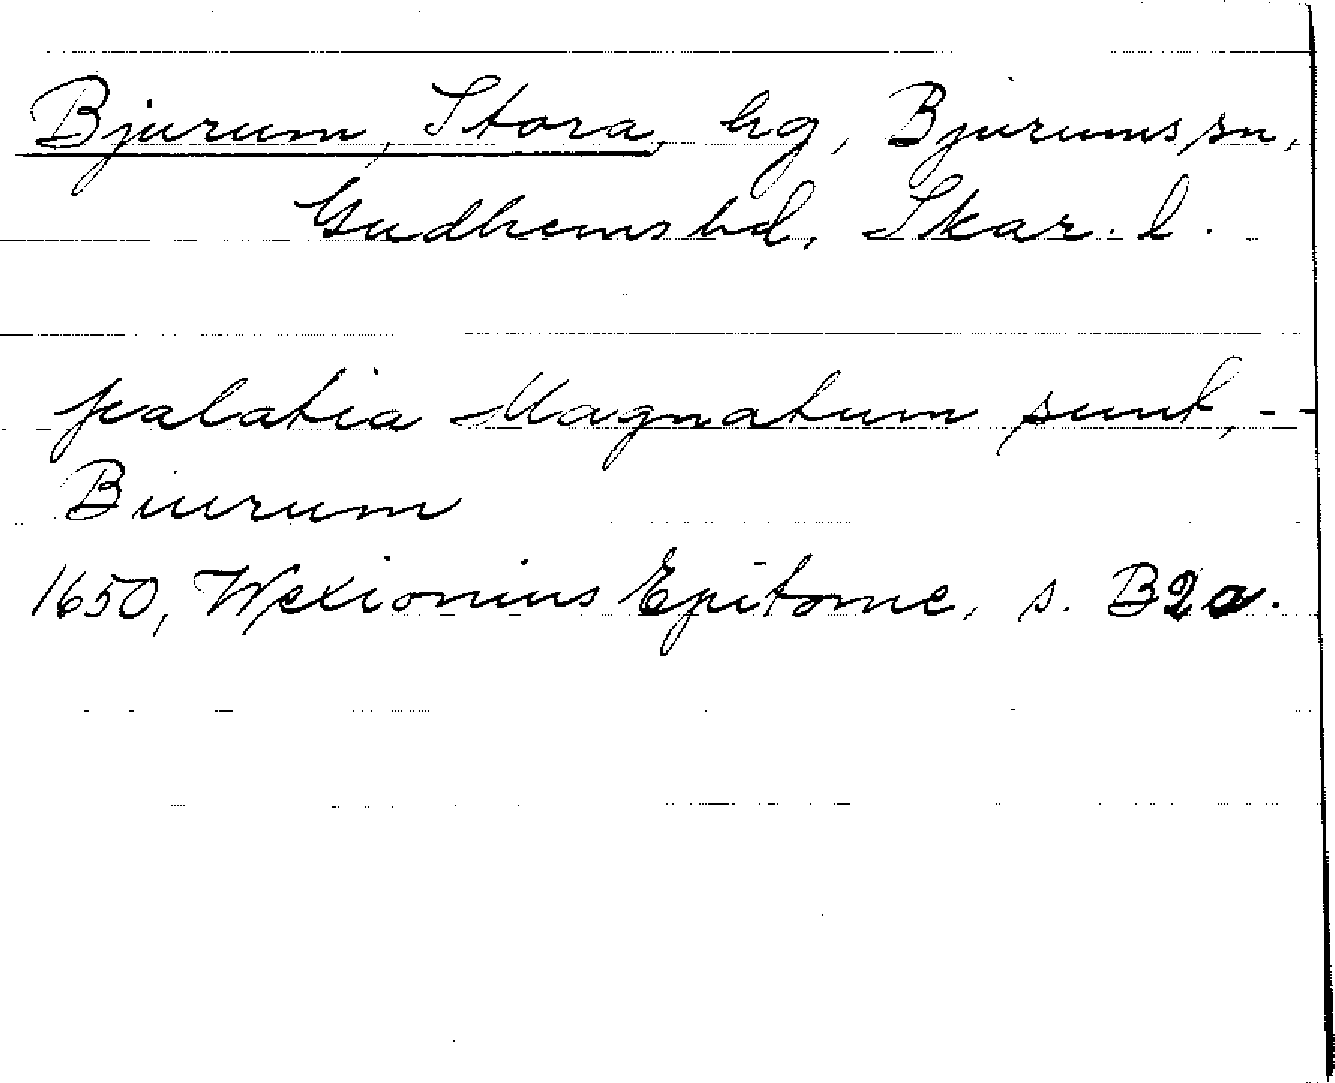 Bjurum, Stora, hg, Bjurums sn,
Gudhems hd, Skar. l.
palatia Magnatum sunt, - -
Biurum
1650, Wexionius Epitome, s. B2a.